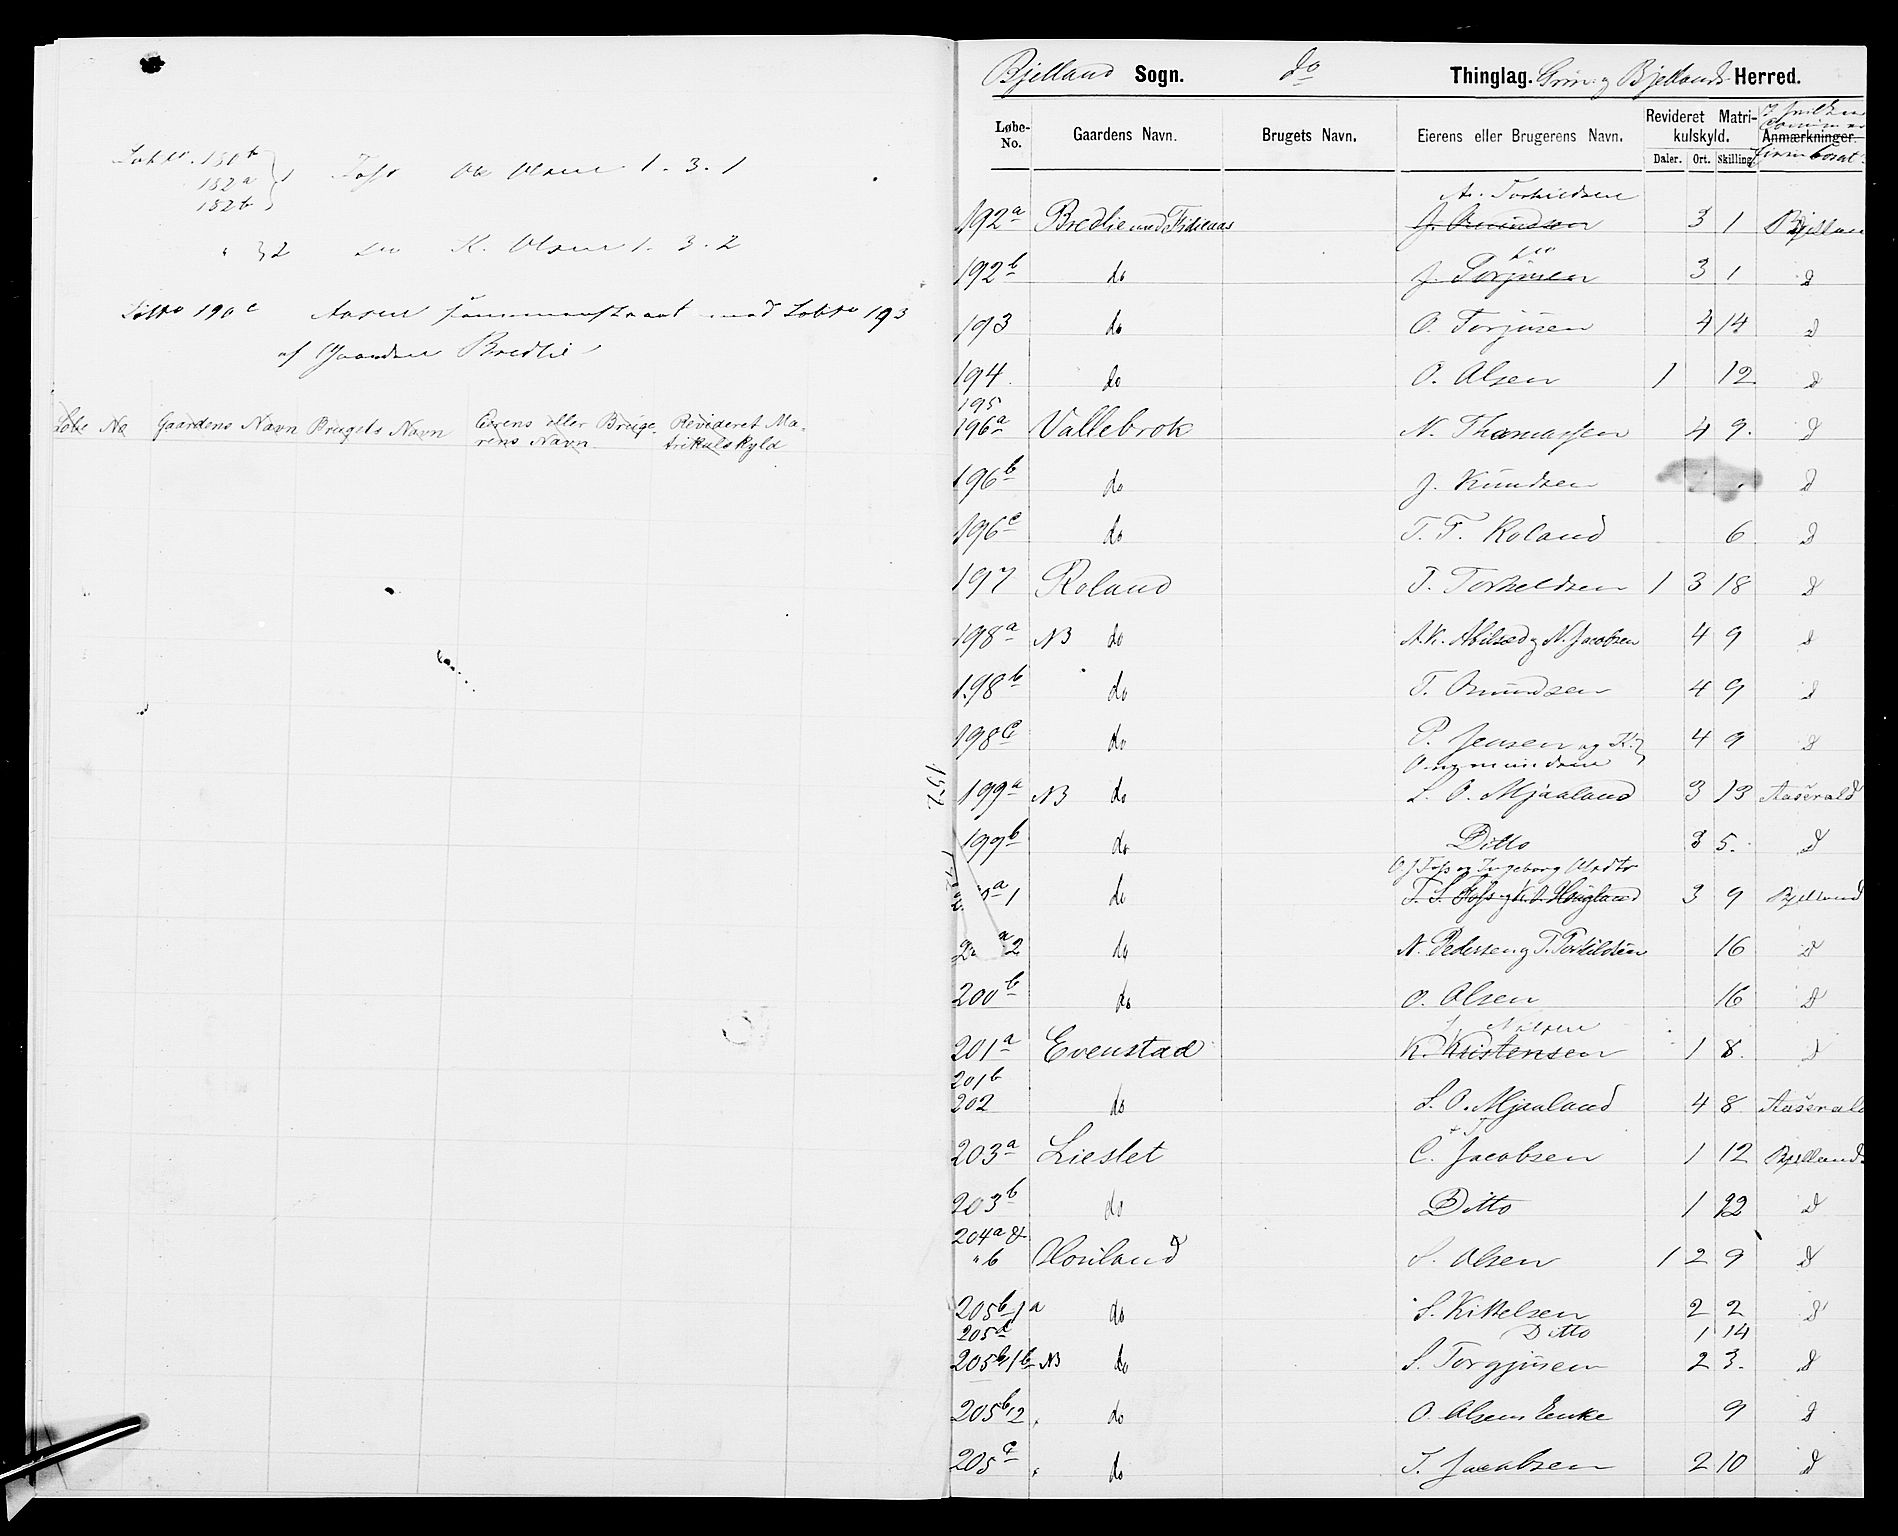 Løbno. 150b } 1 Foss Ole Olsen 1. 3. 1
152a
152b
" } 2 do K. Olsen 1. 3. 2
Løbno 190c Aasen sammentraat med Løbno 193
af Gaarden Bredlie
Løbe No Gaardens Navn Brugets Navn Eierens eller Bruge- Revideret Ma-
rens Navn. trikulskyld
Bjelland Sogn. do Thinglag. Grin. og Bjellands Herred.
Løbe-No. Gaardens Navn. Brugets Navn. Eierens eller Brugerens Navn. Revideret Matrikulskyld. Anmærkninger.
Daler. Ort. Skilling
A. Torkildsen
192a Bredlie med Fidienas J. Omundsen 3 1 Bjelland
do
192b do J. Torjusen 3 1 d
193 do O. Torjusen 4 14 d
194 do O. Olsen 1 12 d
195
196a Vallebrok N. Thomassen 4 9 d
196b do J. Knudsen d
196c do T. T. Roland 6 d
197 Roland T. Torkeldsen 1 3 18 d
198a NB do A. K. Abilsed og N. Jacobsen 4 9 d
198b do T. Omundsen 4 9 d
198c do P. Jensen og K. 4 9 d
Ommundsen
199a NB do L. O. Mjaaland 3 13 Aaserald
199b do Ditto 3 5 d
O J Foss og Ingeborg Olsdtr
a1 do T. S. Foss og K. O. Hougland 3 9 Bjelland
a2 do N. Pedersen og T. Torkildsen 16 d
200b do O. Olsen 16 d
Nilsen
201a Evenstad K. Kristensen 1 8 d
201b
202 do L. O. Mjaaland 4 8 Aaserald
203a Lieslet C. Jacobsen 1 12 Bjelland
203b do Ditto 1 12 d
204a &
" b Houland S. Olsen 1 2 9 d
205b 1a do S. Kittelsen 2 2 d
205d Ditto 1 14
205b 1b NB do S. Torgjusen 2 3 d
205b 2 do O. Olsens Enke 9 d
205c do T. Jacobsen 2 10 d
152